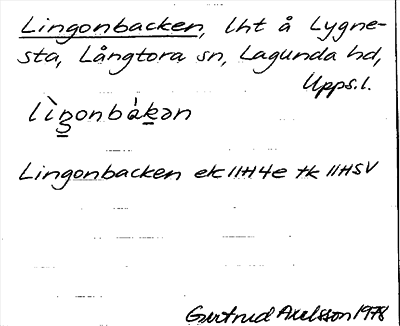 Lingonbacken, lht å Lygne-
sta, Långtora sn, Lagunda hd,
Upps.l.
lìŋonbàkən
Lingonbacken ek 11H4e tk 11HSV
Gertrud Axelsson 1978